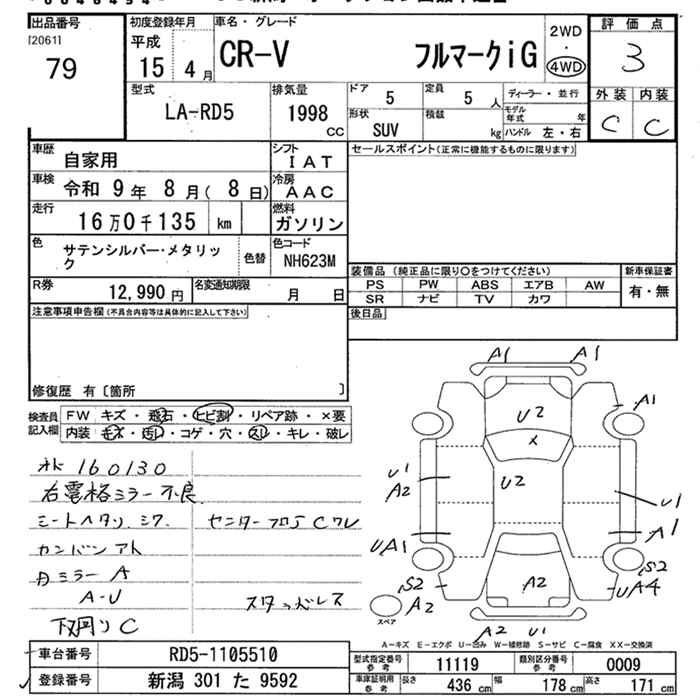 出品番号
79
初度登録年月
平成
15 4月
車名・グレード
CR-V フルマークiG
2WD
・
4WD
評価点
3
外装 内装
C C
型式
LA-RD5
排気量
1998
CC
ドア
5
定員
5 人
形状
SUV
積載
kg
ディーラー・並行
モデル年式 年
ハンドル 左・右
車歴
自家用
シフト
IAT
車検
令和 9年 8月( 8日)
冷房
AAC
走行
16万0千135 km
燃料
ガソリン
色
サテンシルバー・メタリック
色替
色コード
NH623M
R券
12,990 円
名変通知期限
月 日
セールスポイント(正常に機能するものに限ります)
装備品 (純正品に限り○をつけてください)
PS PW ABS エアB AW
SR ナビ TV カワ
新車保証書
有・無
後日品
注意事項申告欄(不具合内容等は具体的に記入して下さい)
修復歴 有〔箇所 〕
検査員記入欄
FW キズ・飛石・ヒビ割・リペア跡・×要
内装 モス・汚い・コゲ・穴・スレ・キレ・破レ
160130
右電格ミラー不良
シートヘタリ.シワ. センターフロアCワレ
カンバンアト
内ミラーA
A-U スタッドレス
下廻りC
A1 A1
A1
U2
×
U2
U1
A2
U1
A1
UA1
S2
A2
S2
UA4
A2
A2 U1
スペア
A-キズ E-エクボ U-凹み W-補修跡 S-サビ C-腐食 XX-交換済
車台番号
RD5-1105510
登録番号
新潟 301 た 9592
型式指定番号
参考
11119
類別区分番号
参考
0009
車庫証明用
参考
長さ 436 cm 幅 178 cm 高さ 171 cm